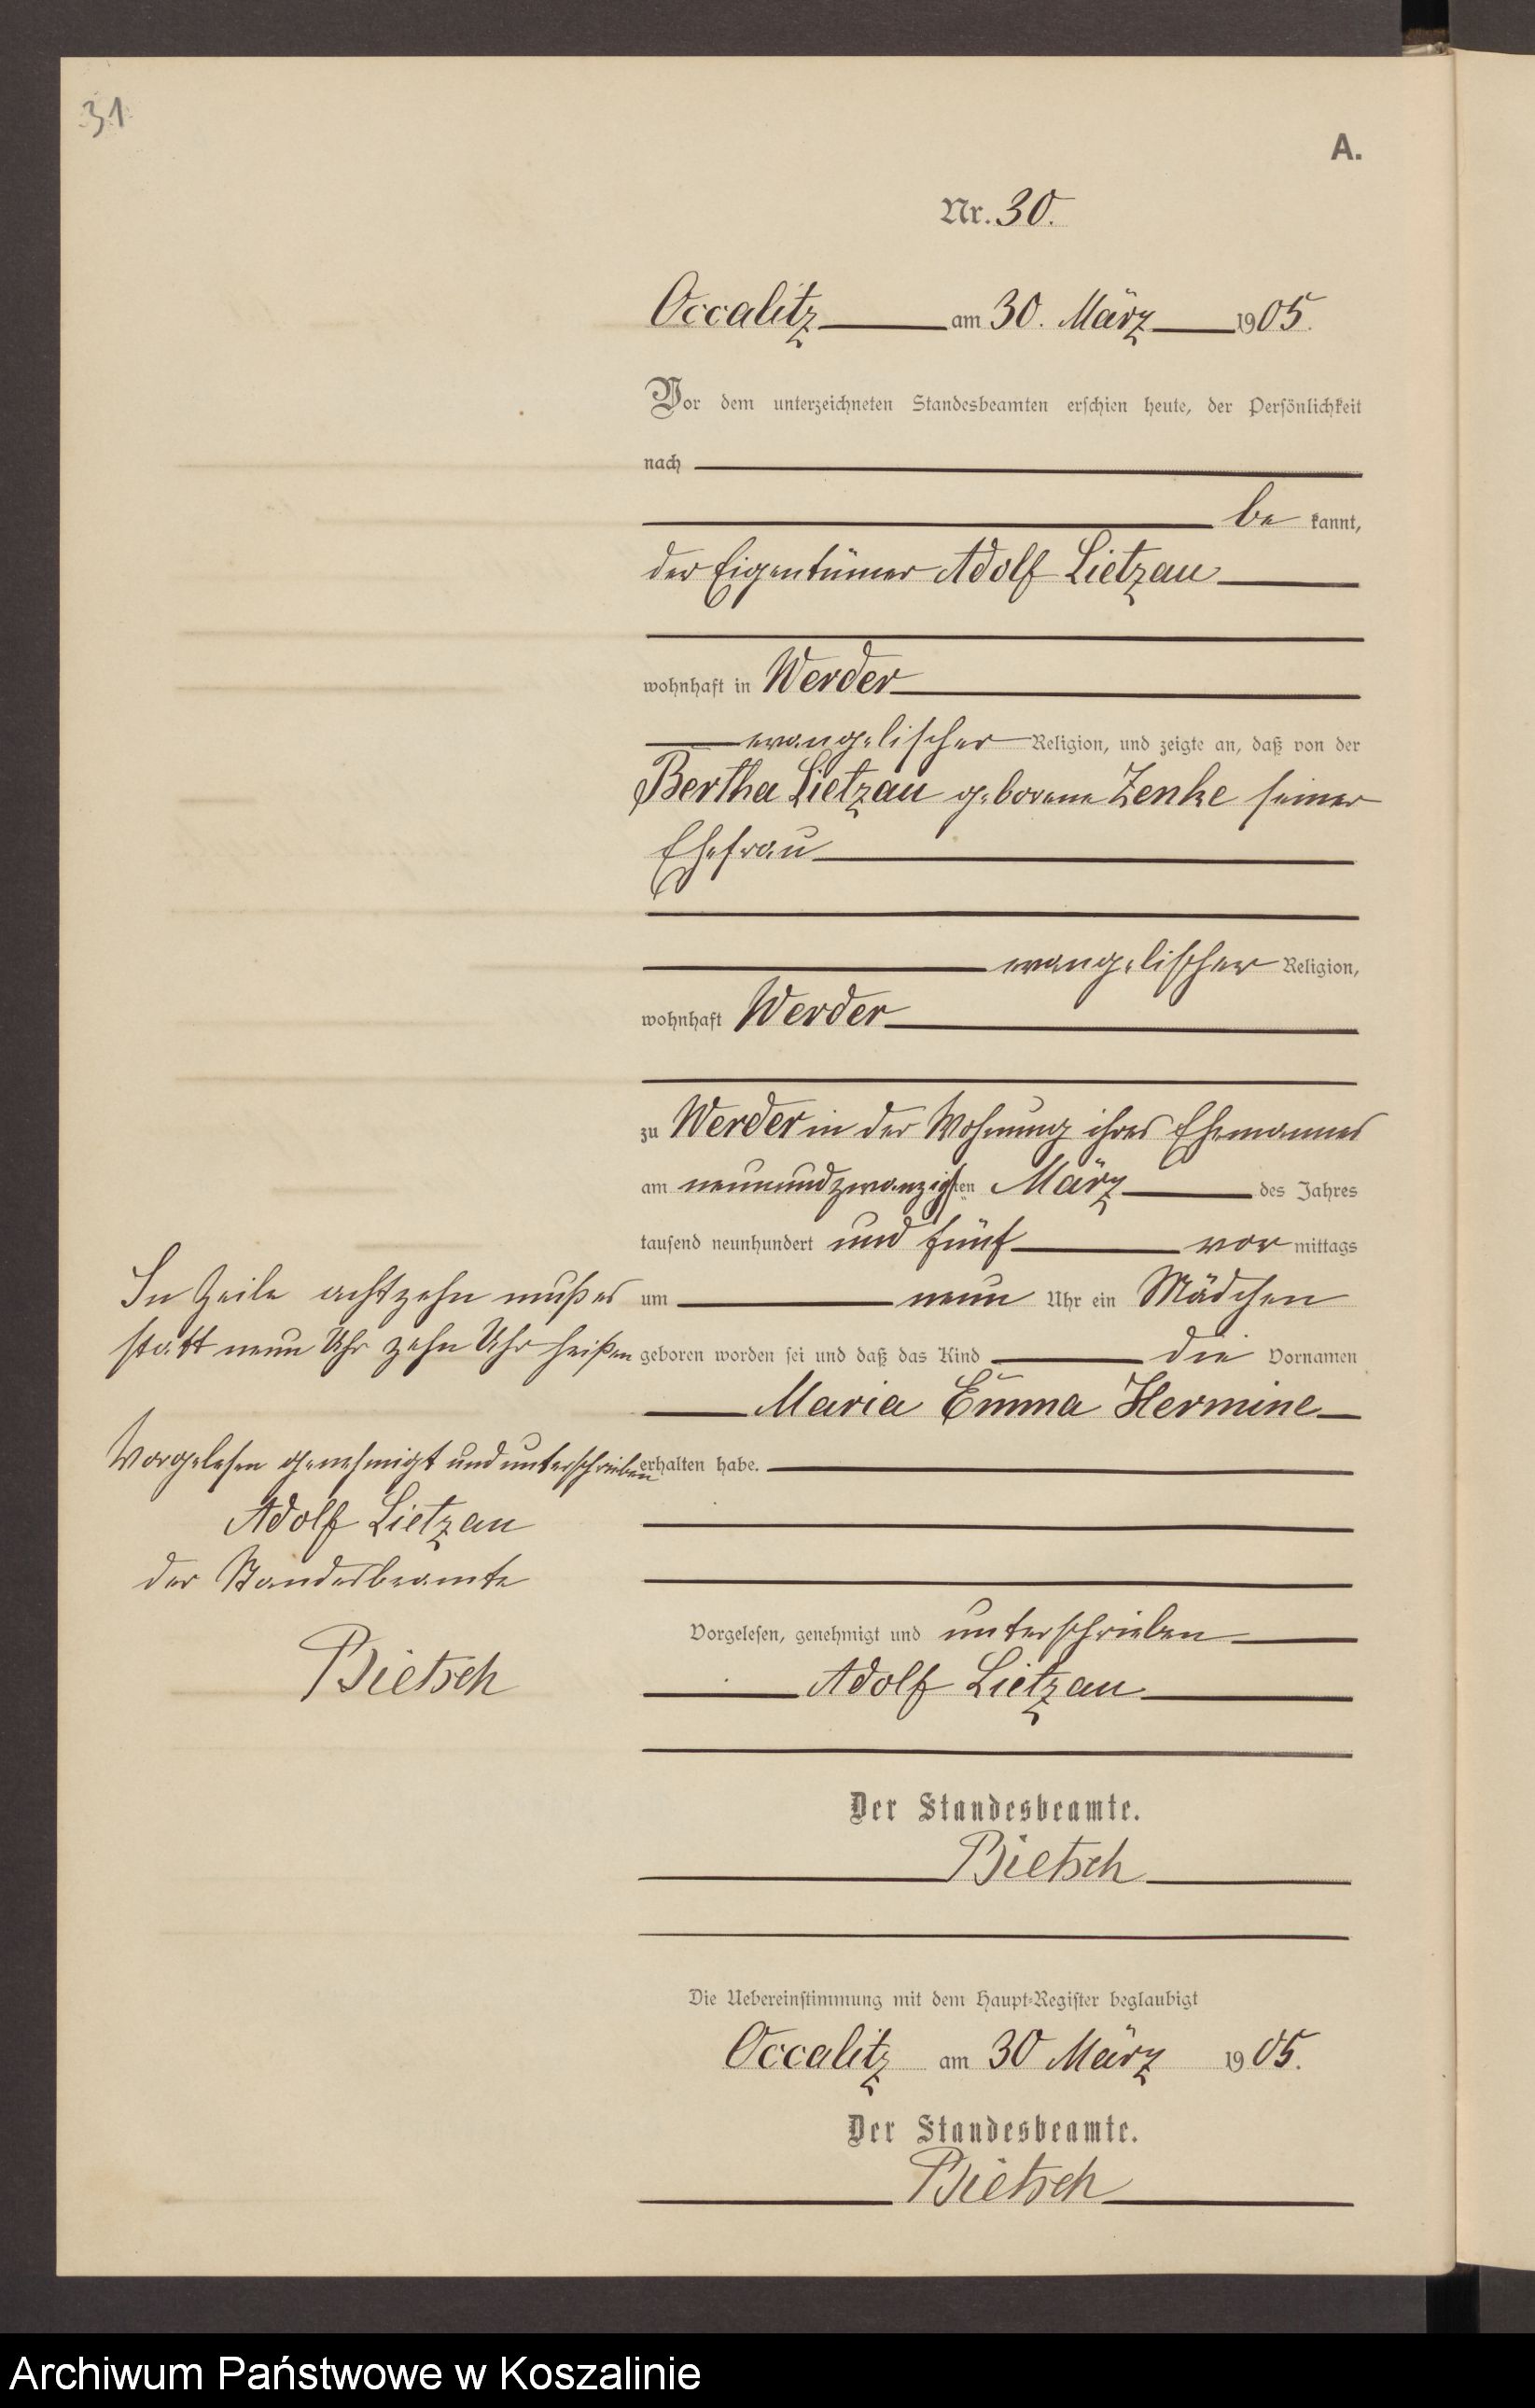 31
A.
Nr. 30.
Occalitz am 30. März 1905.
Vor dem unterzeichneten Standesbeamten erschien heute, der Persönlichkeit
nach
be kannt,
der Eigentümer Adolf Lietzau
wohnhaft in Werder
evangelischer Religion, und zeigte an, daß von der
Bertha Lietzau geborene Zenke seiner
Ehefrau
evangelischer Religion,
wohnhaft Werder
zu Werder in der Wohnung ihres Ehemannes
am neunundzwanzigsten März des Jahres
tausend neunhundert und fünf vor mittags
um neun Uhr ein Mädchen
geboren worden sei und daß das Kind die Vornamen
Maria Emma Hermine
erhalten habe.
Vorgelesen, genehmigt und unterschrieben
Adolf Lietzau
Der Standesbeamte.
Bietsch
Die Uebereinstimmung mit dem Haupt-Register beglaubigt
Occalitz am 30 März 1905.
Der Standesbeamte.
Bietsch
In Zeile achtzehn muß es
statt neun Uhr zehn Uhr heißen
Vorgelesen genehmigt und unterschrieben
Adolf Lietzau
der Standesbeamte
Bietsch
Archiwum Państwowe w Koszalinie